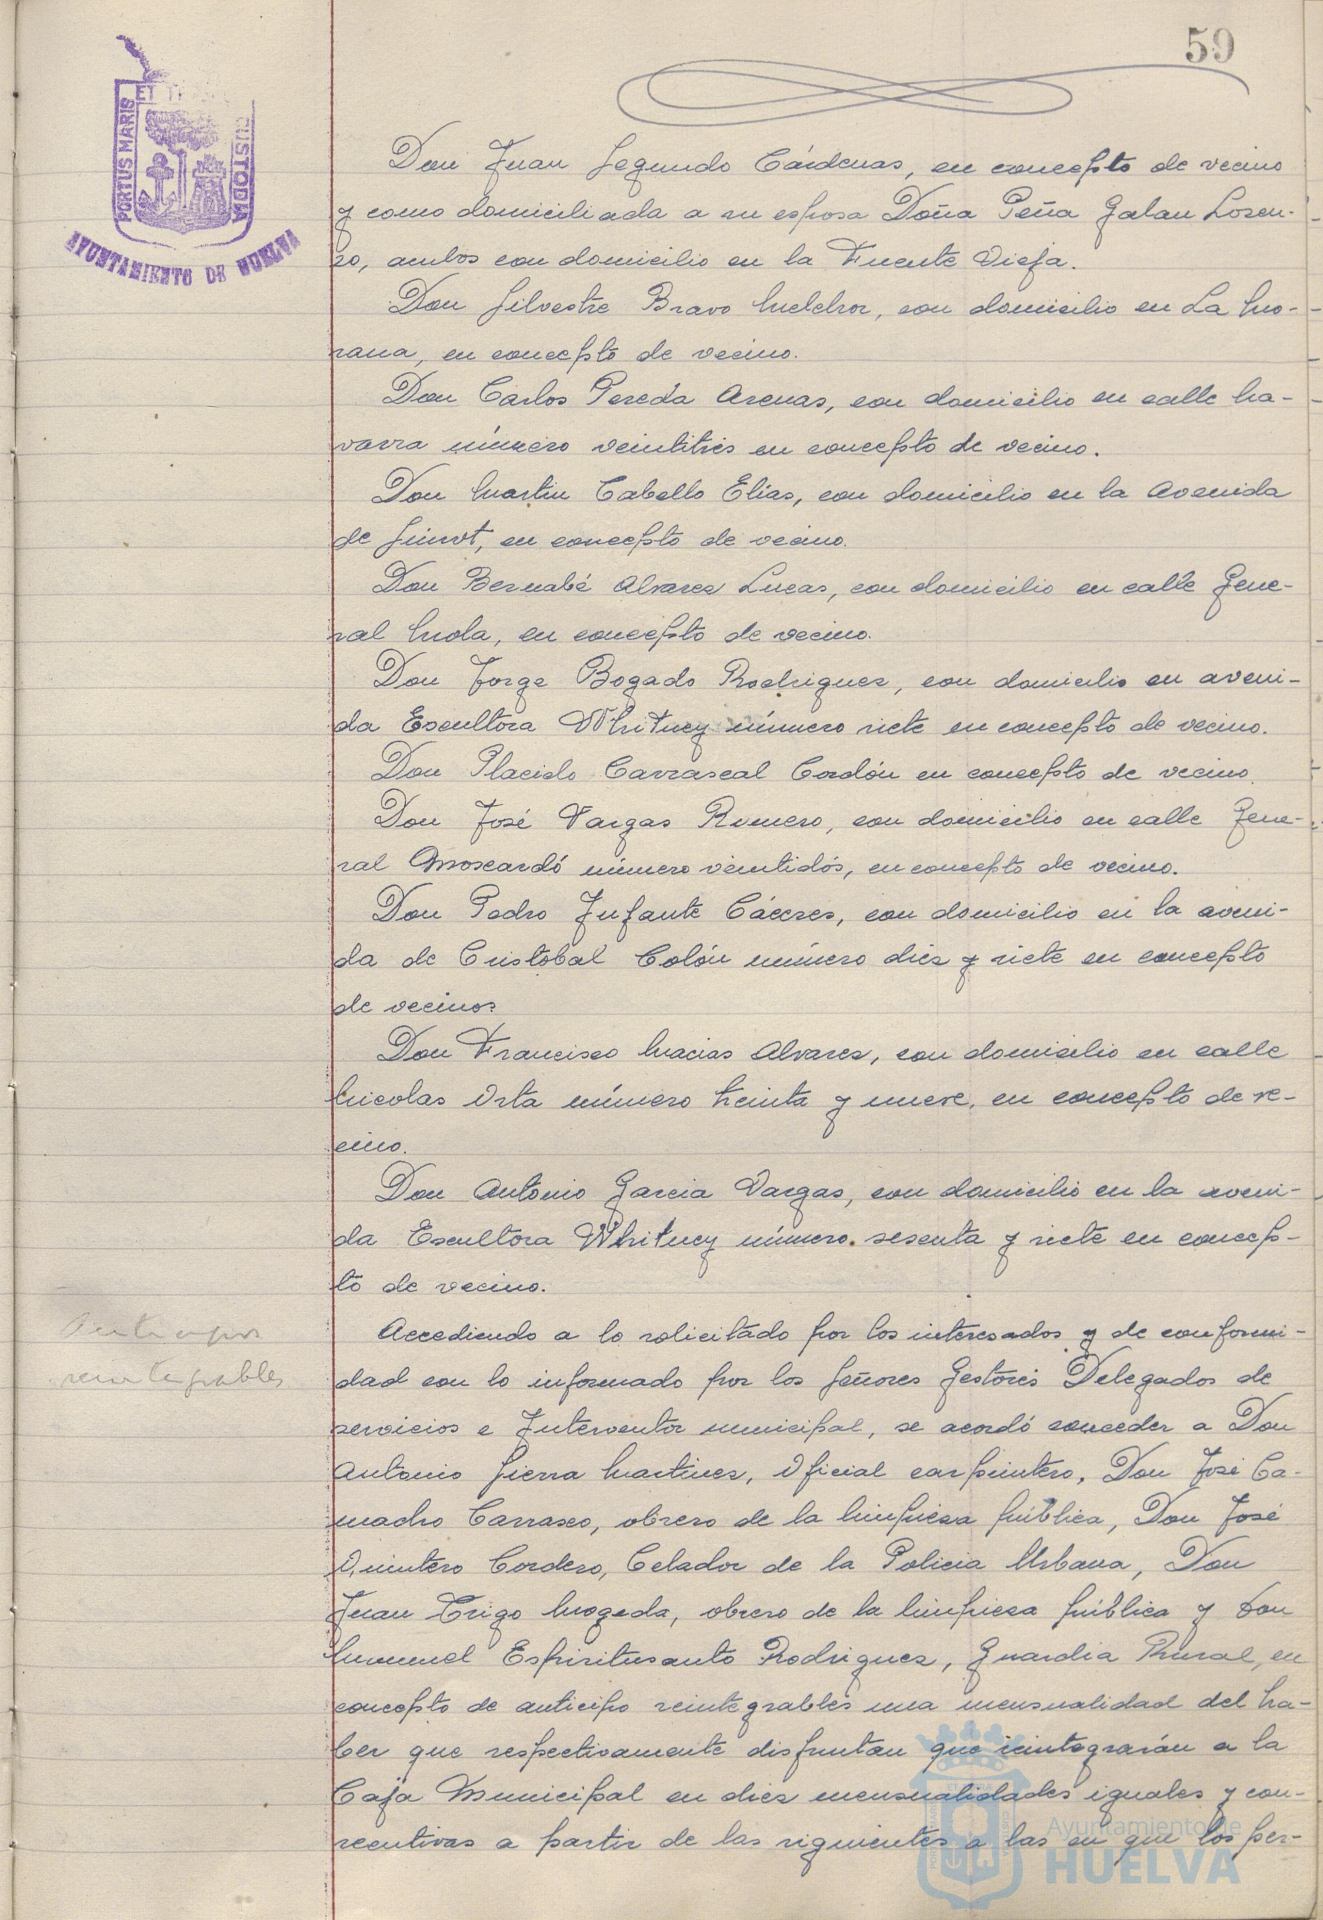 59
PORTUS MARIS ET TERRÆ CUSTODIA
AYUNTAMIENTO DE HUELVA
Don Juan Segundo Cárdenas, en concepto de vecino
y como domiciliada a su esposa Doña Peña Galan Loren-
zo, ambos con domicilio en la Fuente Vieja.
Don Silvestre Bravo Melchor, con domicilio en La Mo-
rana, en concepto de vecino.
Don Carlos Pereda Arenas, con domicilio en calle Na-
varra número veintitrés en concepto de vecino.
Don Martin Cabello Elías, con domicilio en la Avenida
de Sinvot, en concepto de vecino.
Don Bernabé Alvarez Lucas, con domicilio en calle Gene-
ral Mola, en concepto de vecino.
Don Jorge Bogado Rodriguez, con domicilio en aveni-
da Escultora Whitney número siete en concepto de vecino.
Don Placido Carrascal Cordón en concepto de vecino.
Don José Vargas Romero, con domicilio en calle Gene-
ral Moscardó número veintidós, en concepto de vecino.
Don Pedro Infante Cáceres, con domicilio en la aveni-
da de Cristobal Colón número diez y siete en concepto
de vecino.
Don Francisco Macias Alvarez, con domicilio en calle
Nicolas Orta número treinta y nueve, en concepto de ve-
cino.
Don Antonio Garcia Vargas, con domicilio en la aveni-
da Escultora Whitney número sesenta y siete en concep-
to de vecino.
Anticipos
reintegrables
Accediendo a lo solicitado por los interesados y de conformi-
dad con lo informado por los Señores Gestores Delegados de
servicios e Interventor municipal, se acordó conceder a Don
Antonio Sierra Martinez, Oficial carpintero, Don José Ca-
macho Carrasco, obrero de la limpieza pública, Don José
Quintero Cordero, Celador de la Policia Urbana, Don
Juan Trigo Mogeda, obrero de la limpieza pública y Don
Manuel Espiritusanto Rodriguez, Guardia Rural, en
concepto de anticipo reintegrables una mensualidad del ha-
ber que respectivamente disfrutan que reintegrarán a la
Caja Municipal en diez mensualidades iguales y con-
secutivas a partir de las siguientes a las en que los per-
Ayuntamiento de
HUELVA